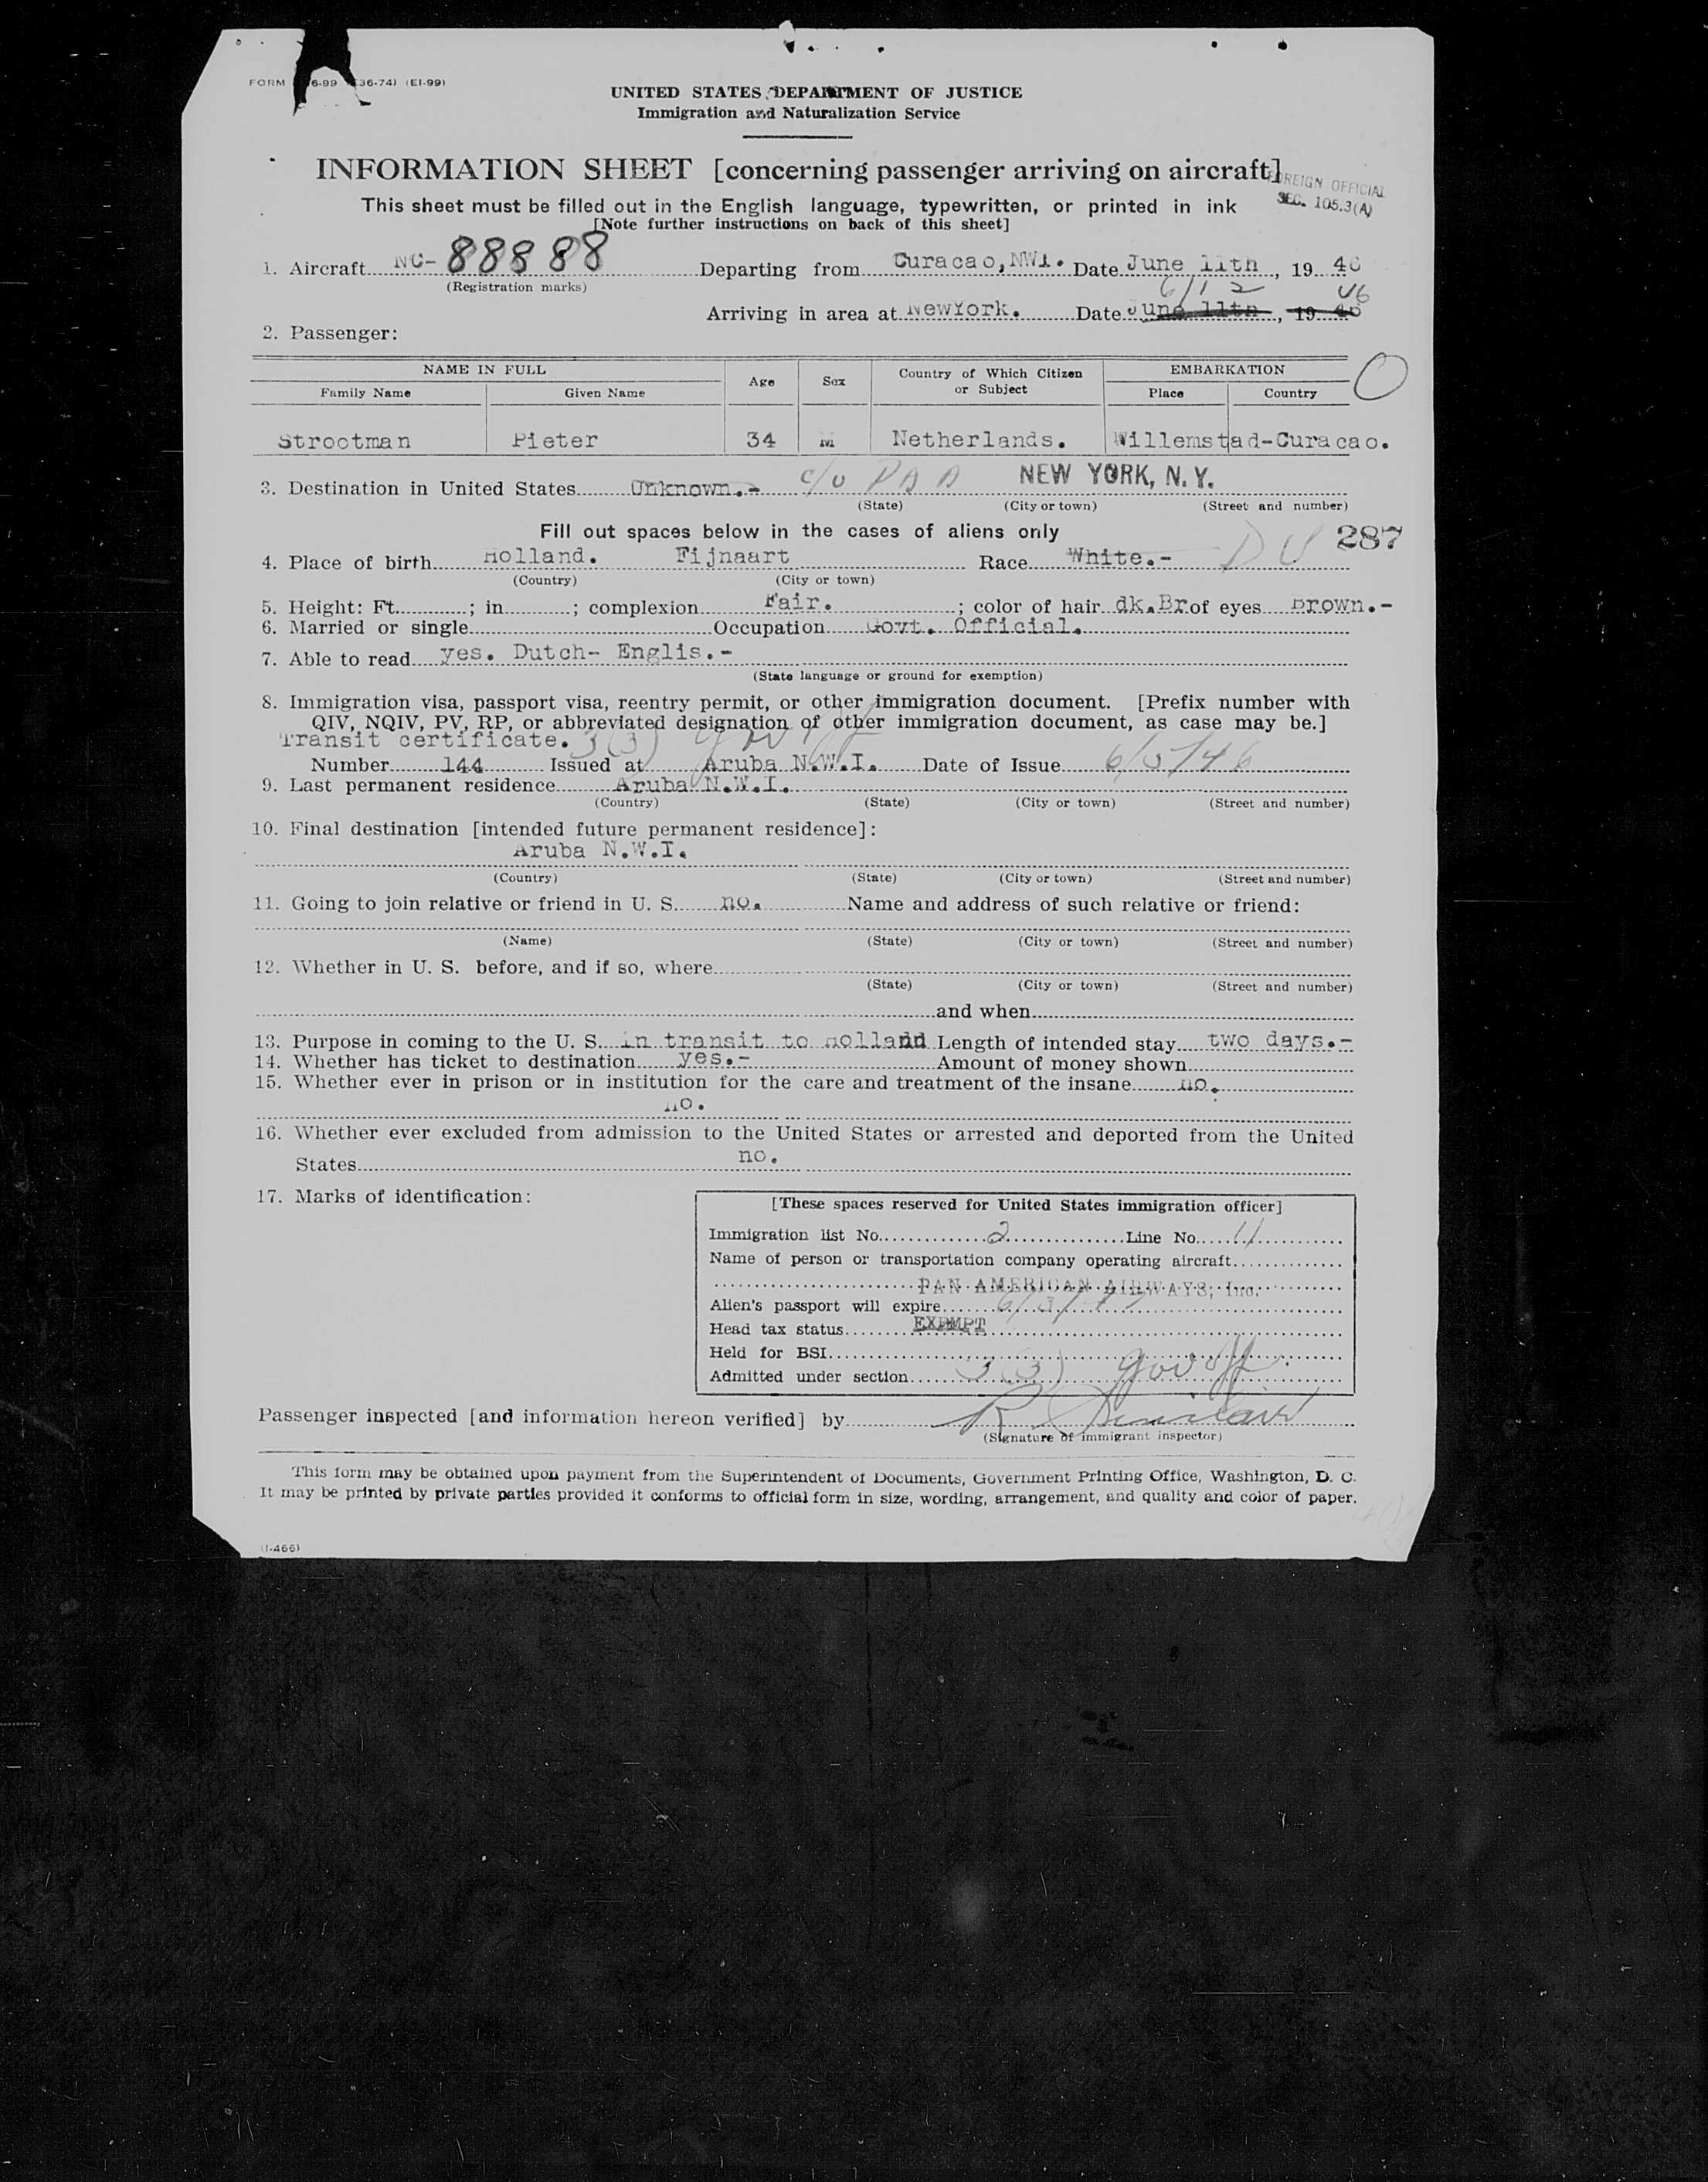 FORM 6-99 36-74) (EI-99)
UNITED STATES DEPARTMENT OF JUSTICE
Immigration and Naturalization Service
INFORMATION SHEET [concerning passenger arriving on aircraft]
FOREIGN OFFICIAL
SEC. 105.3(A)
This sheet must be filled out in the English language, typewritten, or printed in ink
[Note further instructions on back of this sheet]
1. Aircraft NC-88888 Departing from Curacao,NWI. Date June 11th, 19 46
(Registration marks)
6/12 46
Arriving in area at NewYork. Date June 11th, 19 46
2. Passenger:
NAME IN FULL Age Sex Country of Which Citizen or Subject EMBARKATION
Family Name Given Name Place Country
Strootman Pieter 34 M Netherlands. Willemstad-Curacao.
3. Destination in United States Unknown.- c/o PAA NEW YORK, N.Y.
(State) (City or town) (Street and number)
Fill out spaces below in the cases of aliens only
287
4. Place of birth Holland. Fijnaart Race White.-
(Country) (City or town)
5. Height: Ft. ; in ; complexion Fair. ; color of hair dk.Br of eyes Brown.-
6. Married or single Occupation Govt. Official.
7. Able to read yes. Dutch- Englis.-
(State language or ground for exemption)
8. Immigration visa, passport visa, reentry permit, or other immigration document. [Prefix number with
QIV, NQIV, PV, RP, or abbreviated designation of other immigration document, as case may be.]
Transit certificate. 3(3)
Number 144 Issued at Aruba N.W.I. Date of Issue 6/5/46
9. Last permanent residence Aruba N.W.I.
(Country) (State) (City or town) (Street and number)
10. Final destination [intended future permanent residence]:
Aruba N.W.I.
(Country) (State) (City or town) (Street and number)
11. Going to join relative or friend in U. S. no. Name and address of such relative or friend:
(Name) (State) (City or town) (Street and number)
12. Whether in U. S. before, and if so, where
(State) (City or town) (Street and number)
and when
13. Purpose in coming to the U. S. in transit to Holland Length of intended stay two days.-
14. Whether has ticket to destination yes.- Amount of money shown
15. Whether ever in prison or in institution for the care and treatment of the insane no.
no.
16. Whether ever excluded from admission to the United States or arrested and deported from the United
States no.
17. Marks of identification:
[These spaces reserved for United States immigration officer]
Immigration list No. 2 Line No. 11
Name of person or transportation company operating aircraft
PAN AMERICAN AIRWAYS, Inc.
Alien's passport will expire
Head tax status EXEMPT
Held for BSI
Admitted under section 3(3) Gov off.
Passenger inspected [and information hereon verified] by R Sinclair
(Signature of immigrant inspector)
This form may be obtained upon payment from the Superintendent of Documents, Government Printing Office, Washington, D. C.
It may be printed by private parties provided it conforms to official form in size, wording, arrangement, and quality and color of paper.
(I-466)